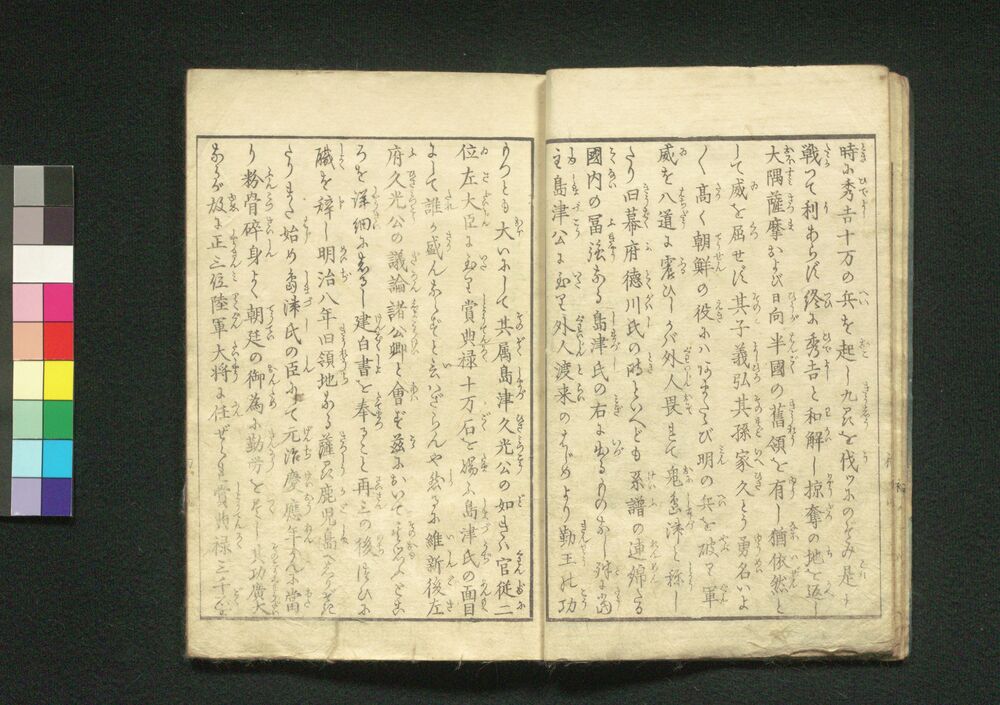 時に秀吉十万の兵を起し九州を伐ツにのぞみ是と
戦つて利あらず終に秀吉と和解し掠奪の地を返し
大隅薩摩および日向半國の舊領を有し猶依然と
して威を屈せず其子義弘其孫家久とう勇名いよ
〱高く朝鮮の役にハ明の兵を破り軍
威を八道に震ひしが外人畏れて鬼島津と称し
たり旧幕府徳川氏の時といへども系譜の連綿たる
國内の冨強なる島津氏の右に出るものなし殊に當
主島津公に至り外人渡来のはじめより勤王の功
もつとも大いにして其属島津久光公の如きハ官従二
位左大臣に至り賞典禄十万石を賜ふ島津氏の面目
にして誰か盛んなりといはざらんや然るに維新後左
府久光公の議論諸公卿と會ず茲において
ろを詳細にしるし建白書を奉ること再三の後つひに
職を辞し明治八年旧領地なる薩州鹿児島へ
たりまた始め島津氏の臣にて元治慶應年かんに當
り粉骨碎身よく朝廷の御為に勤労をつくし其功廣大
なるが故に正三位陸軍大将に任ぜられ賞典禄三千